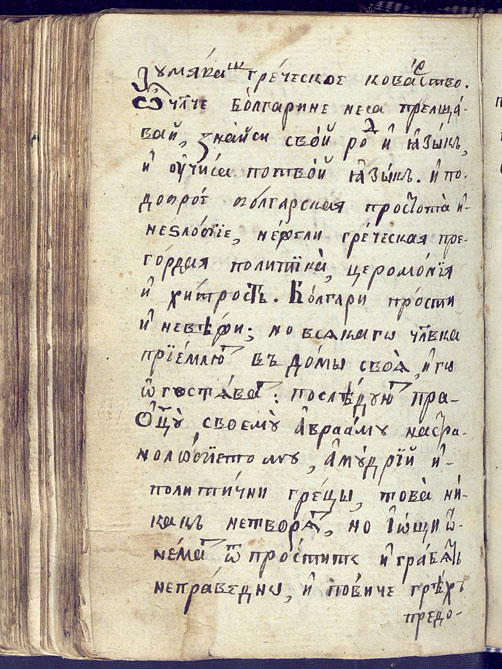 зумѣваⷮ греческое кова́рⷭтво.
Ѿ тꙋче Болгарине несѧ прелща-
вай, знайси свой роⷣ и ꙗзыкъ,
и оучисѧ потвой ꙗзыкъ. и по-
доброе болгарская простота и
неѕлобїе, нежели греческая пре-
гордая политїка, церомонїя
и хитрость. Болгари прости
и невѣжи; но всякаго чл҃вка
прїемлюⷮ въ домы своѧ, и го
ѡгоставаⷮ: последуюⷮ пра-
ѡц҃ꙋ своемꙋ Аврааму настра-
нолюбїетому, а мудрїй и
политични грецы, това ни-
какъ нетворѧⷮ, но іощи ѿ-
немаⷮ ѿ простите и грабѧⷮ
неправедны, и повиче грѣхъ
предо-